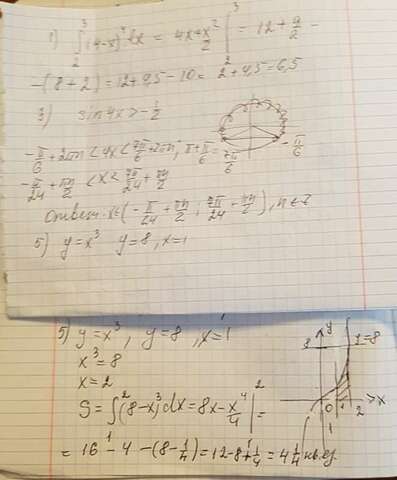 1) ∫₂³ (4-x) dx = 4x + x²/2 |₂³ = 12 + 9/2 -
-(8+2) = 12+4,5-10 = 2+4,5 = 6,5
3) sin4x > -1/2
-π/6 + 2πn < 4x < 7π/6 + 2πn, π + π/6 = 7π/6
-π/6
-π/24 + πn/2 < x < 7π/24 + πn/2
Ответ: x∈(-π/24 + πn/2; 7π/24 + πn/2), n∈Z
5) y=x³ y=8, x=1
5) y=x³, y=8, x=1
x³=8
x=2
S = ∫₁² (8-x³)dx = 8x - x⁴/4 |₁² =
= 16 - 4 - (8 - 1/4) = 12-8+1/4 = 4 1/4 кв.ед.
8 y y=8
0 1 2 x
1